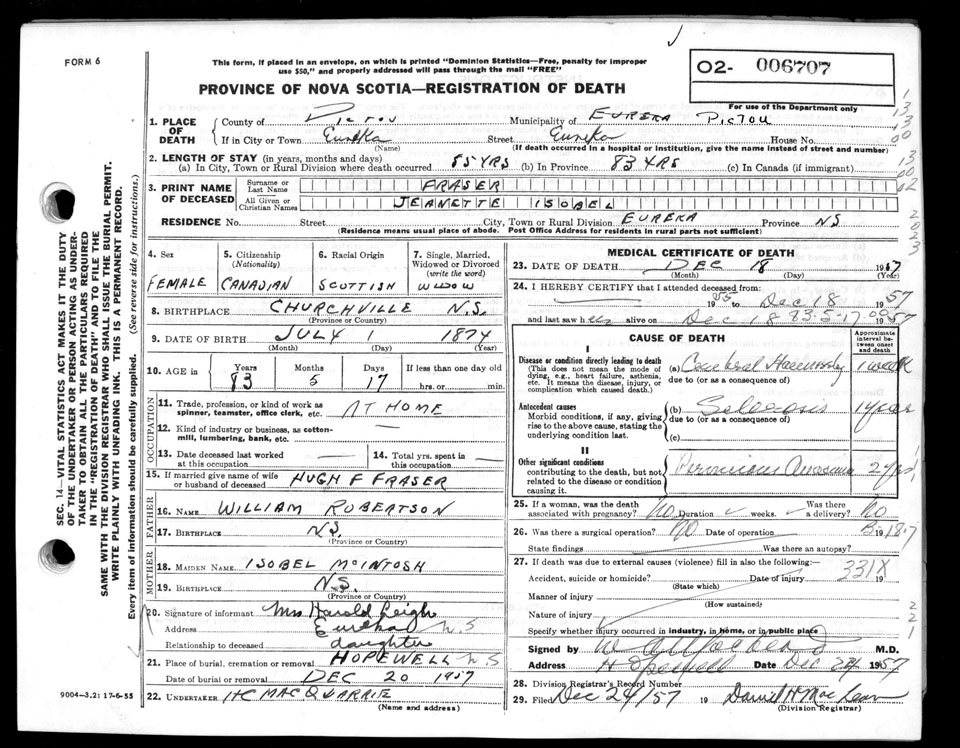 FORM 6
This form, if placed in an envelope, on which is printed "Dominion Statistics—Free, penalty for improper
use $50," and properly addressed will pass through the mail "FREE"
O2- 006707
For use of the Department only
PROVINCE OF NOVA SCOTIA—REGISTRATION OF DEATH
1. PLACE OF DEATH
County of Pictou Municipality of EUREKA PICTOU
If in City or Town Eureka Street Eureka House No.
(Name) (If death occurred in a hospital or institution, give the name instead of street and number)
2. LENGTH OF STAY (in years, months and days)
(a) In City, Town or Rural Division where death occurred 55 YRS (b) In Province 83 YRS (c) In Canada (if immigrant)
3. PRINT NAME OF DECEASED
Surname or Last Name FRASER
All Given or Christian Names JEANETTE ISOBEL
RESIDENCE No. Street City, Town or Rural Division EUREKA Province NS
(Residence means usual place of abode. Post Office Address for residents in rural parts not sufficient)
4. Sex FEMALE
5. Citizenship (Nationality) CANADIAN
6. Racial Origin SCOTTISH
7. Single, Married, Widowed or Divorced (write the word) WIDOW
8. BIRTHPLACE CHURCHVILLE N.S.
(Province or Country)
9. DATE OF BIRTH JULY 1 1874
(Month) (Day) (Year)
10. AGE in Years Months Days If less than one day old
83 5 17 hrs. or min.
OCCUPATION
11. Trade, profession, or kind of work as
spinner, teamster, office clerk, etc. AT HOME
12. Kind of industry or business, as cotton-
mill, lumbering, bank, etc. —
13. Date deceased last worked
at this occupation —
14. Total yrs. spent in
this occupation —
15. If married give name of wife
or husband of deceased HUGH F FRASER
FATHER
16. NAME WILLIAM ROBERTSON
17. BIRTHPLACE N.S.
(Province or Country)
MOTHER
18. MAIDEN NAME ISOBEL McINTOSH
19. BIRTHPLACE N.S.
(Province or Country)
20. Signature of informant Mrs Harold Leigh
Address Eureka N.S
Relationship to deceased daughter
21. Place of burial, cremation or removal HOPEWELL N.S
Date of burial or removal DEC 20 1957
22. UNDERTAKER HC MACQUARRIE
(Name and address)
9004—3.21: 17-6-55
MEDICAL CERTIFICATE OF DEATH
23. DATE OF DEATH DEC 18 1957
(Month) (Day)
24. I HEREBY CERTIFY that I attended deceased from:
1955 to Dec 18 1957
and last saw her alive on Dec 18 83-5-17.00 1957
CAUSE OF DEATH
Approximate interval between onset and death
I
Disease or condition directly leading to death
(This does not mean the mode of
dying, e.g., heart failure, asthenia,
etc. It means the disease, injury, or
complication which caused death.)
(a) Cerebral Haemorrhage 1 week
due to (or as a consequence of)
Antecedent causes
Morbid conditions, if any, giving
rise to the above cause, stating the
underlying condition last.
(b) Sclerosis 1 year
due to (or as a consequence of)
(c)
II
Other significant conditions
contributing to the death, but not
related to the disease or condition
causing it.
Pernicious Anaemia 2 yrs
25. If a woman, was the death
associated with pregnancy? No Duration weeks. Was there
a delivery? No
26. Was there a surgical operation? No Date of operation 19
State findings Was there an autopsy?
27. If death was due to external causes (violence) fill in also the following:—
331X
Accident, suicide or homicide? Date of injury 19
(State which)
Manner of injury
(How sustained)
Nature of injury
Specify whether injury occurred in industry, in home, or in public place
Signed by M.D.
Address Hopewell Date Dec 24 1957
28. Division Registrar's Record Number
29. Filed Dec 24/57 19 David H MacLean
(Division Registrar)
SEC. 14—VITAL STATISTICS ACT MAKES IT THE DUTY
OF THE UNDERTAKER OR PERSON ACTING AS UNDER-
TAKER TO OBTAIN ALL THE PARTICULARS REQUIRED
IN THE "REGISTRATION OF DEATH" AND TO FILE THE
SAME WITH THE DIVISION REGISTRAR WHO SHALL ISSUE THE BURIAL PERMIT.
WRITE PLAINLY WITH UNFADING INK. THIS IS A PERMANENT RECORD.
Every item of information should be carefully supplied. (See reverse side for instructions.)